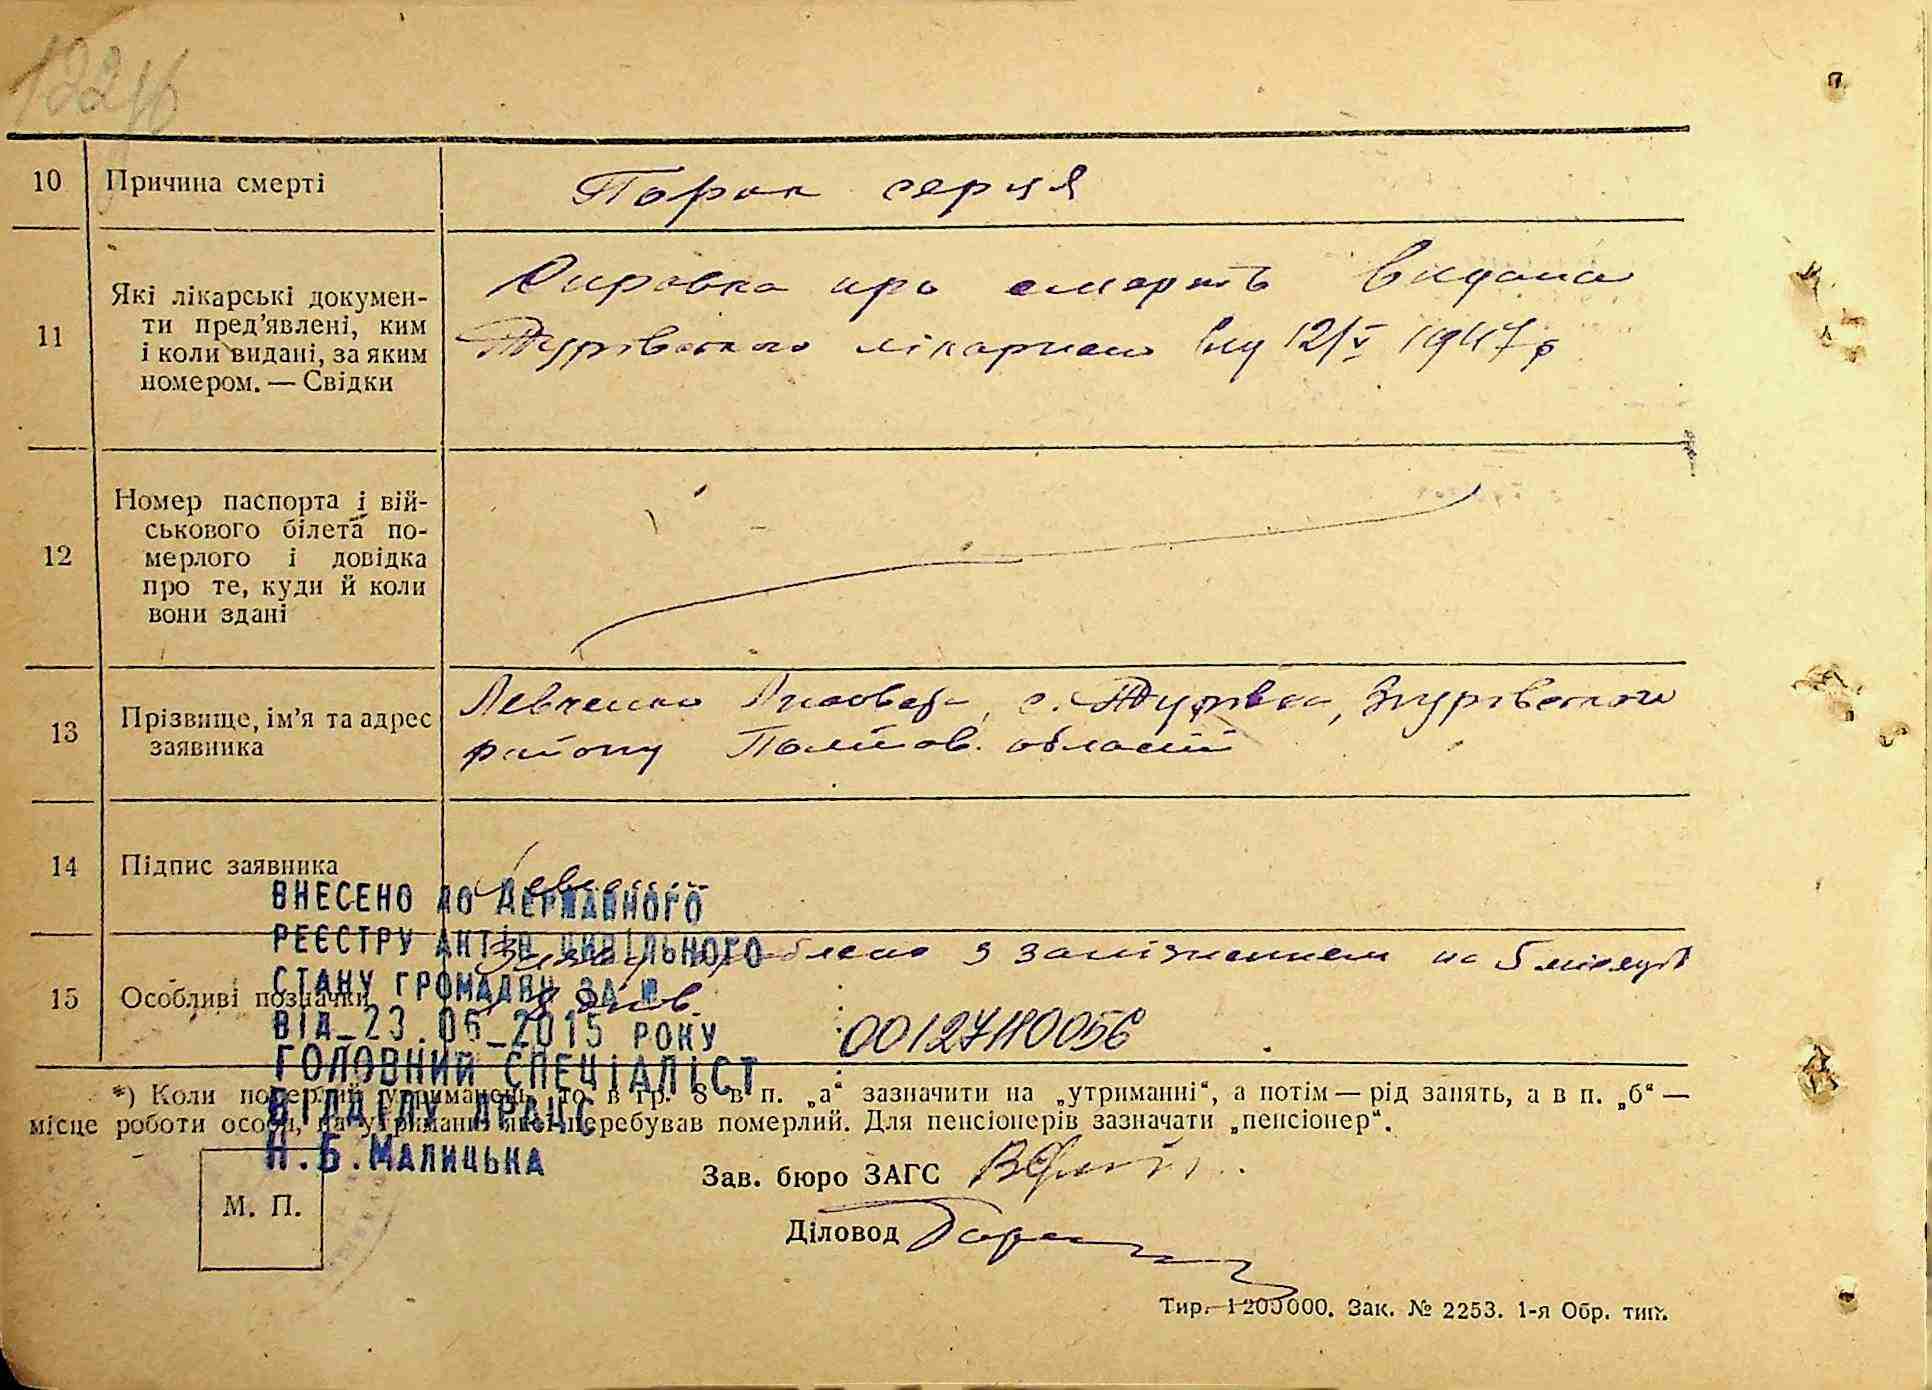 10 Причина смерті Порок серця
11 Які лікарські докумен-
ти пред'явлені, ким
і коли видані, за яким
номером. — Свідки
про смерть видана
лікарнею від 12/V 1947 р
12 Номер паспорта і вій-
ськового білета по-
мерлого і довідка
про те, куди й коли
вони здані
13 Прізвище, ім'я та адрес
заявника
Левченко с. Турівка, Згурівського
району Полтов. області
14 Підпис заявника
15 Особливі позначки
з запізненням на 5 місяців
8 днів.
00127110056
ВНЕСЕНО ДО ДЕРЖАВНОГО
РЕЄСТРУ АКТІВ ЦИВІЛЬНОГО
СТАНУ ГРОМАДЯН ЗА №
ВІД_23.06_2015 РОКУ
ГОЛОВНИЙ СПЕЦІАЛІСТ
ВІДДІЛУ ДРАЦС
Н.Б.МАЛИЦЬКА
*) Коли померлий утриманець, то в гр. 8 в п. „а“ зазначити на „утриманні“, а потім — рід занять, а в п. „б“ —
місце роботи особи, на утриманні якої перебував померлий. Для пенсіонерів зазначати „пенсіонер“.
М. П.
Зав. бюро ЗАГС
Діловод
Тир. 1200000. Зак. № 2253. 1-я Обр. тип.